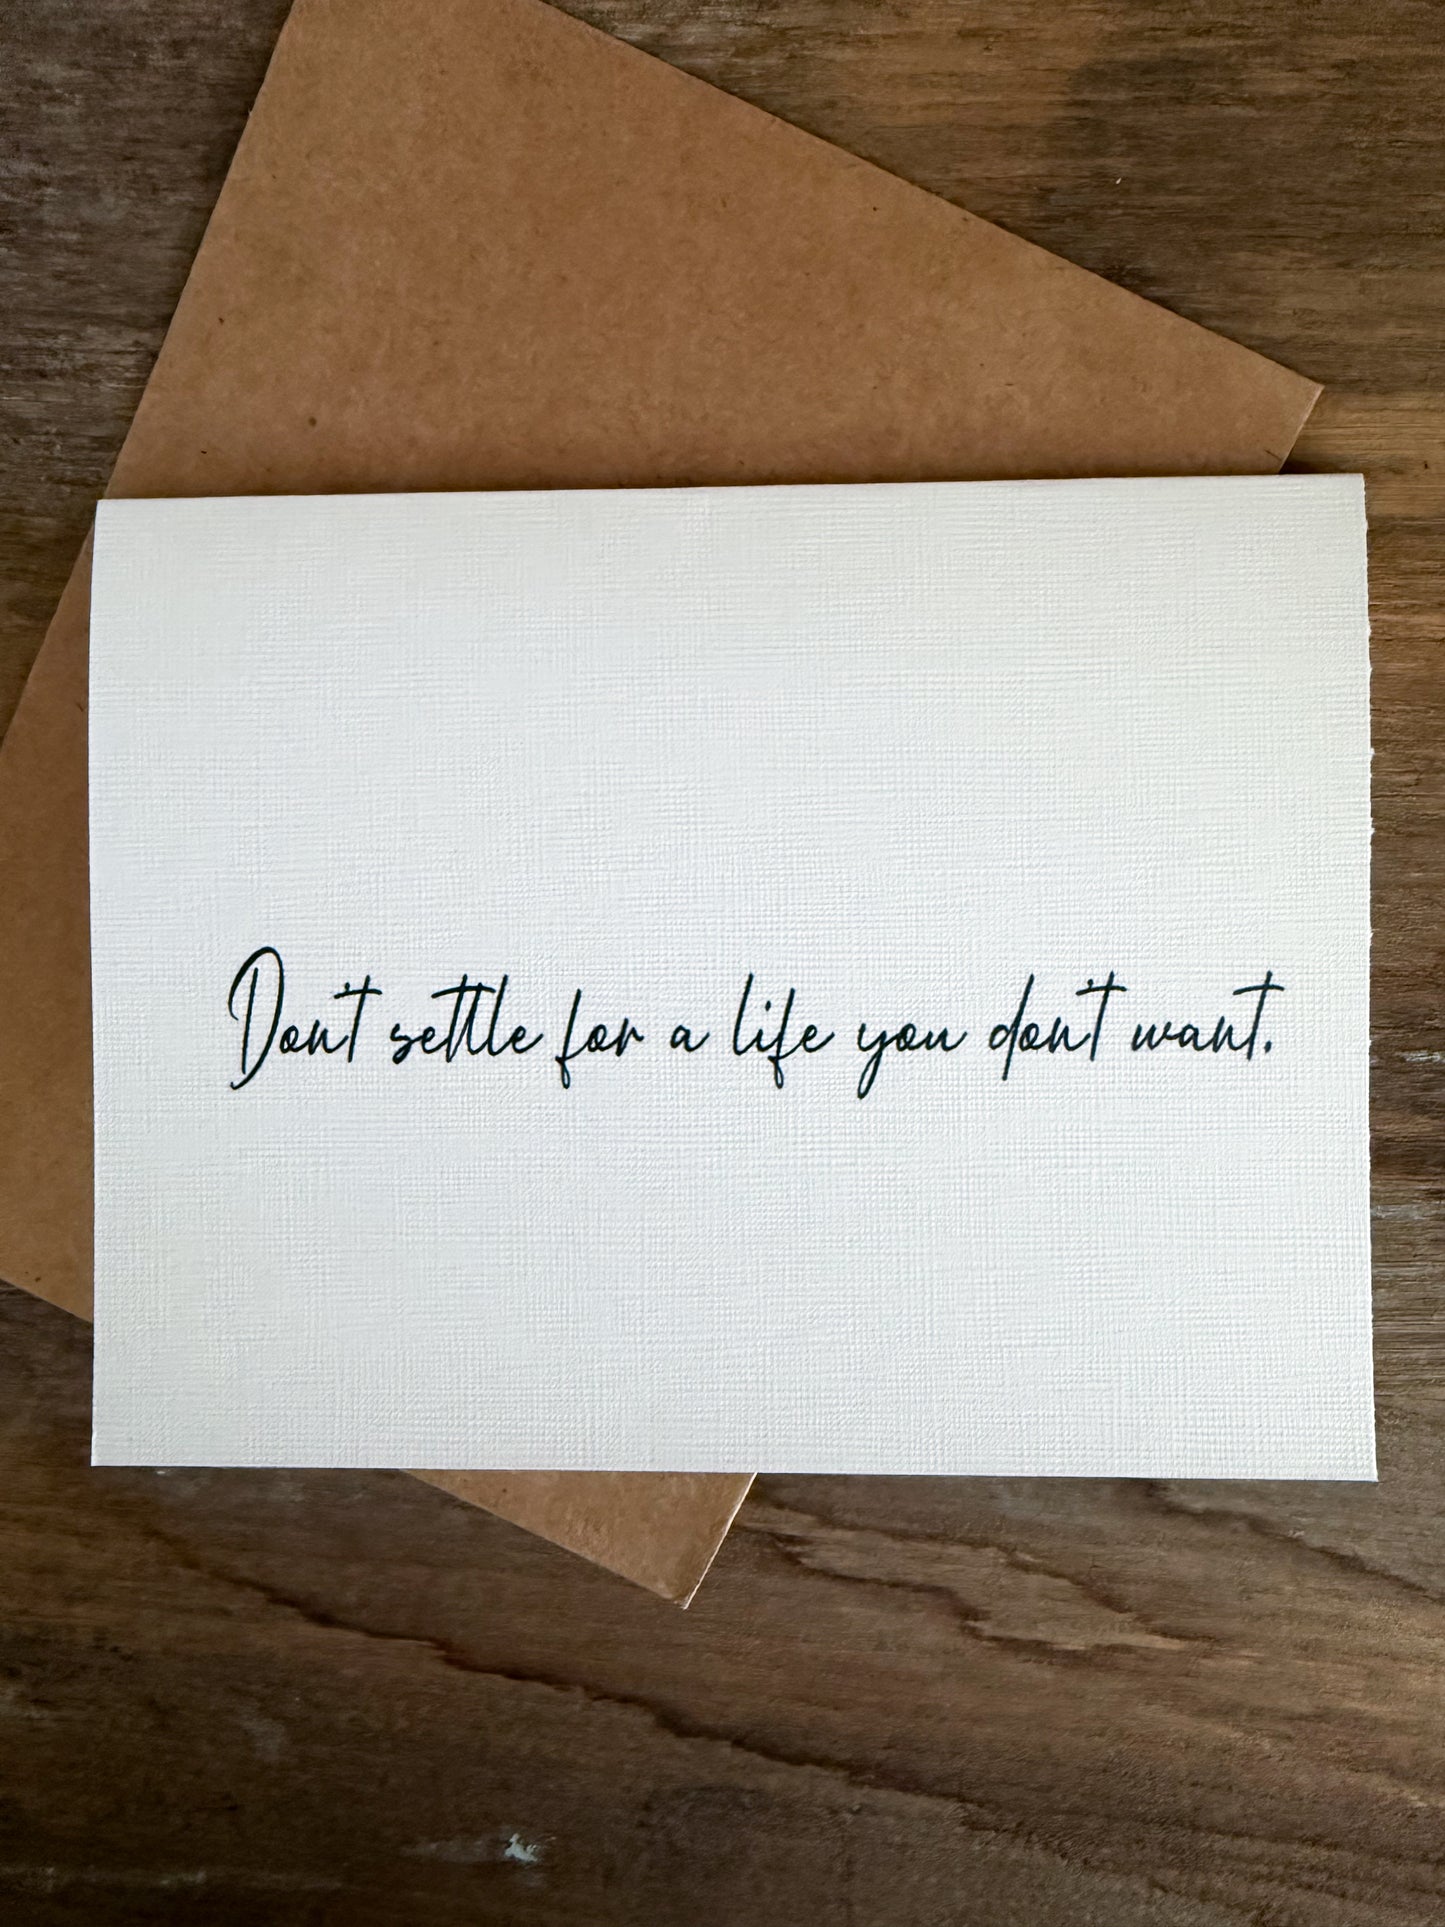 Don't settle for a life you don't want.